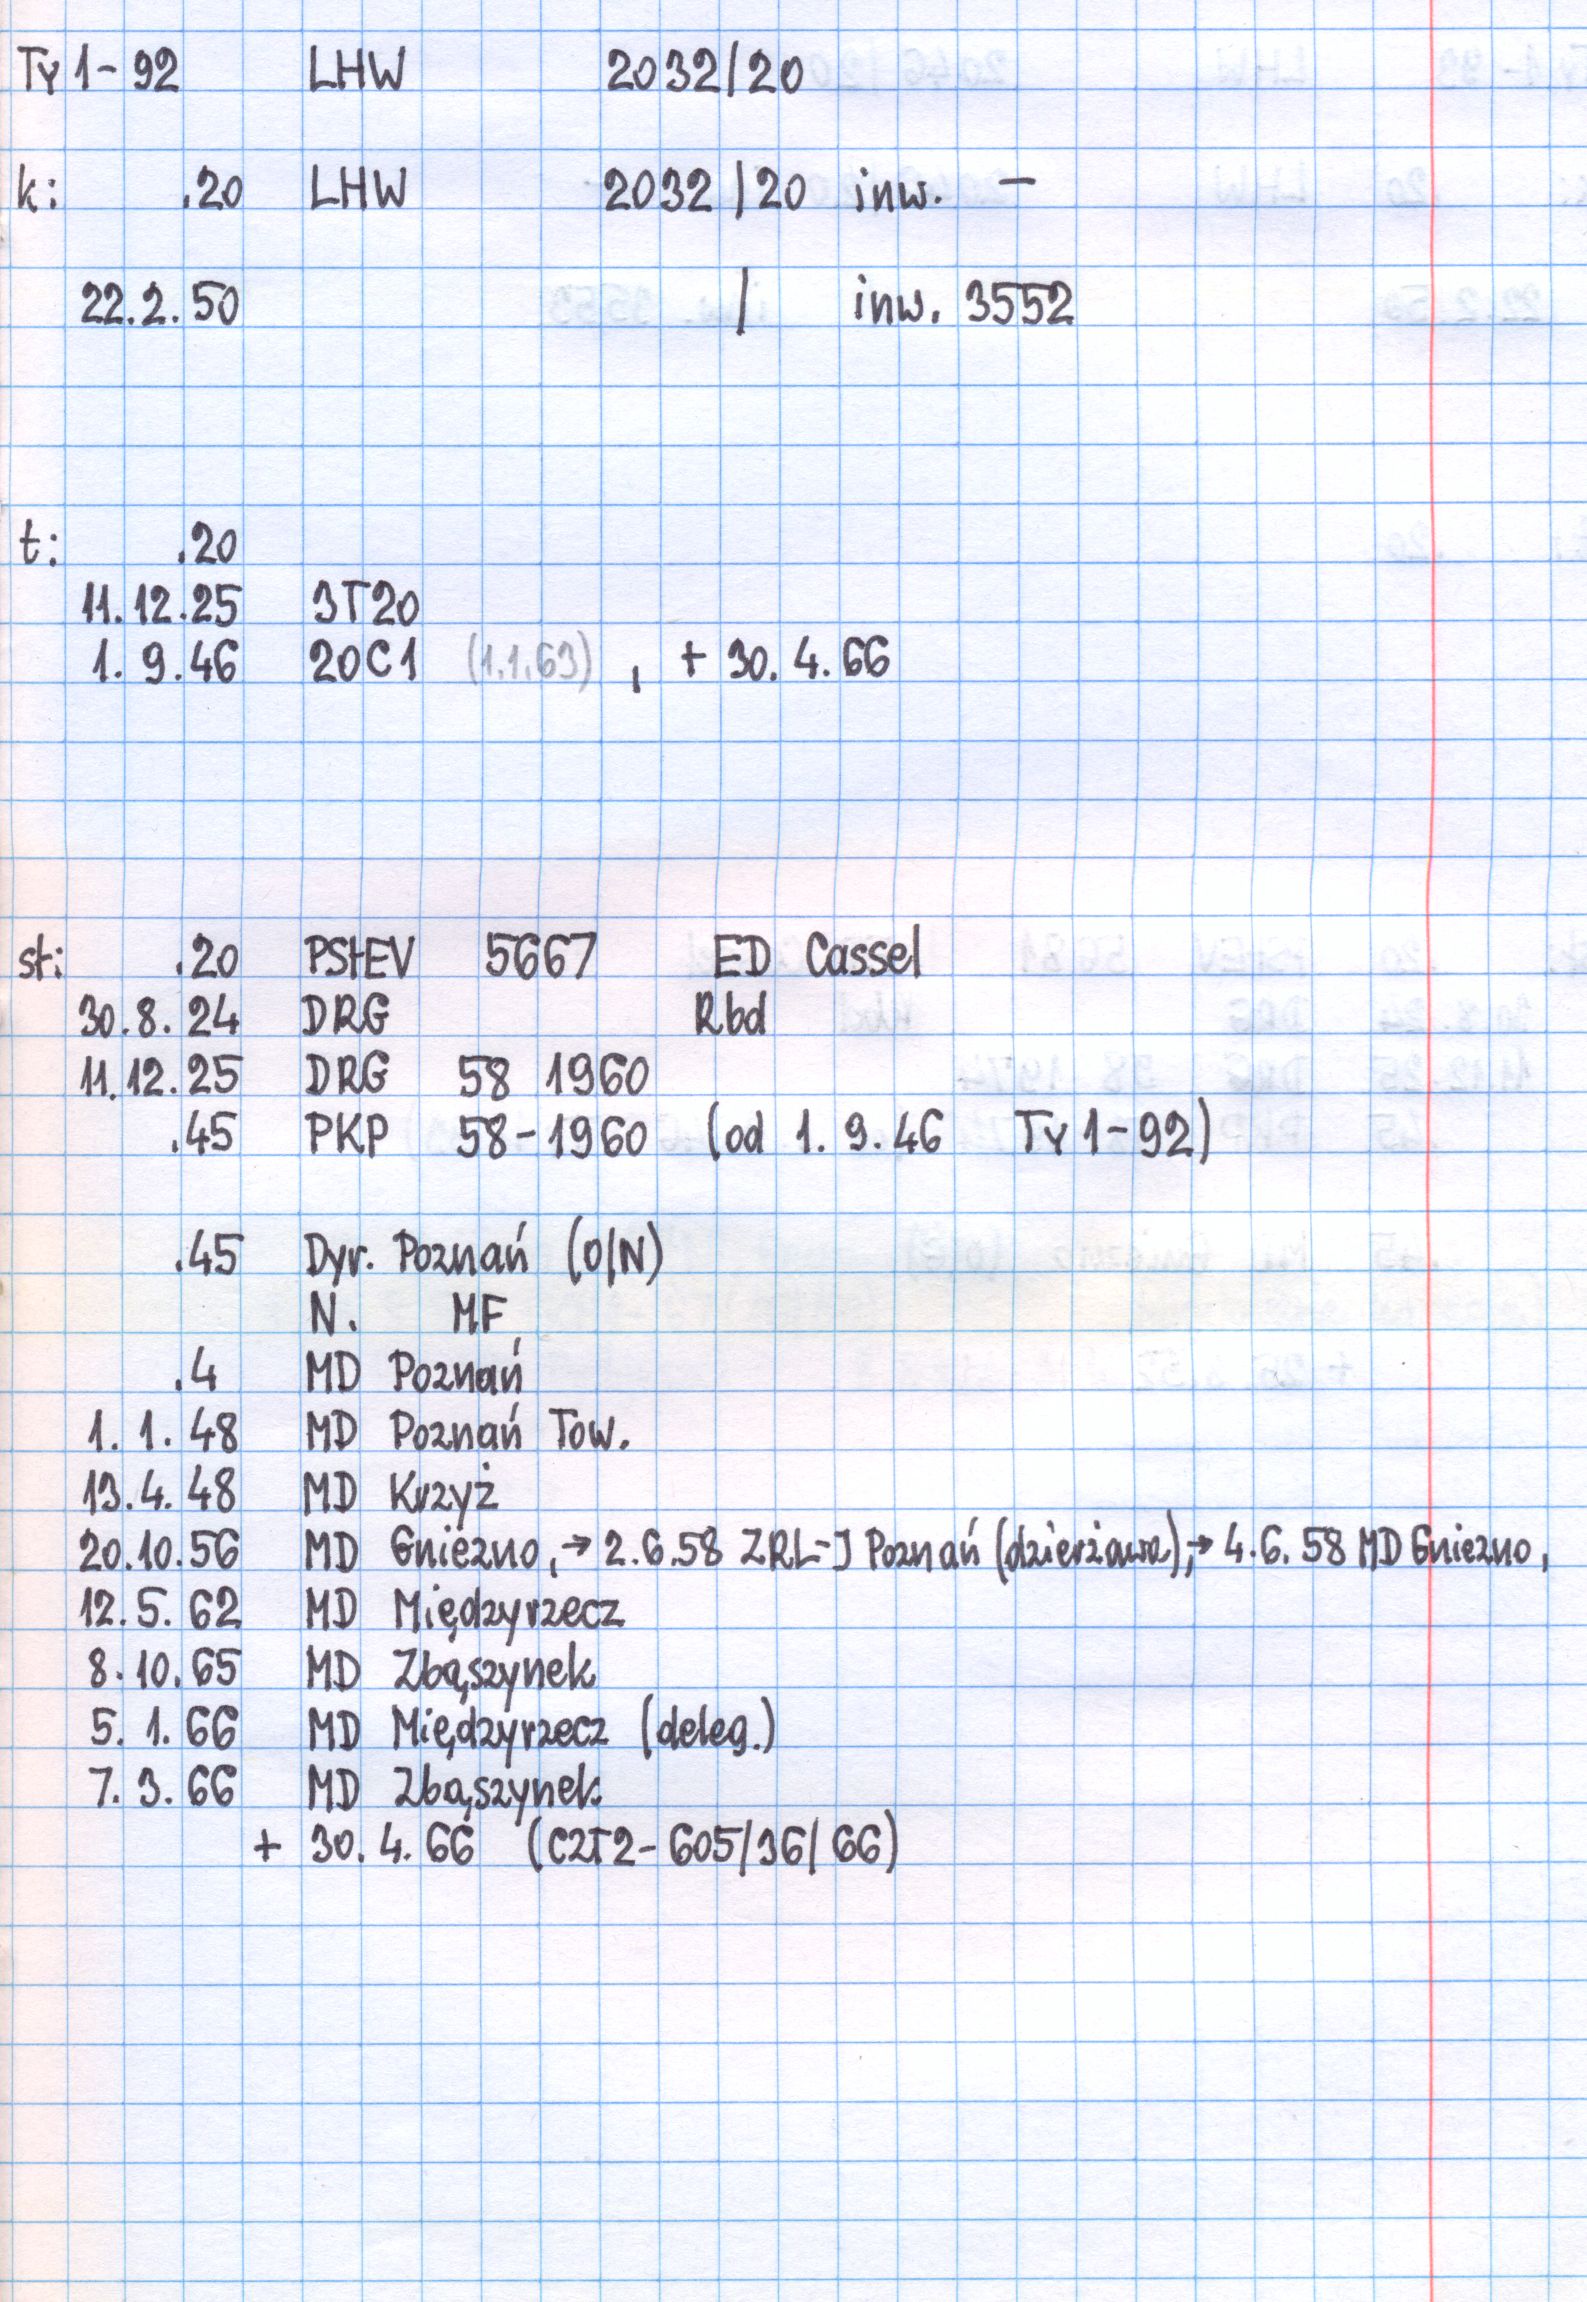 Ty 1-92 LHW 2032/20
k: .20 LHW 2032/20 inw. -
22.2.50 / inw. 3552
t: .20
11.12.25 3T20
1.9.46 20C1 (1.1.63), + 30.4.66
st: .20 PStEV 5667 ED Cassel
30.8.24 DRG Rbd
11.12.25 DRG 58 1960
.45 PKP 58-1960 (od 1.9.46 Ty 1-92)
.45 Dyr. Poznań (O/N)
N. MF
.4 MD Poznań
1.1.48 MD Poznań Tow.
13.4.48 MD Krzyż
20.10.56 MD Gniezno, → 2.6.58 ZRL-J Poznań (dzierżawa), → 4.6.58 MD Gniezno,
12.5.62 MD Międzyrzecz
8.10.65 MD Zbąszynek
5.1.66 MD Międzyrzecz (deleg.)
7.3.66 MD Zbąszynek
+ 30.4.66 (CZT2-605/36/66)